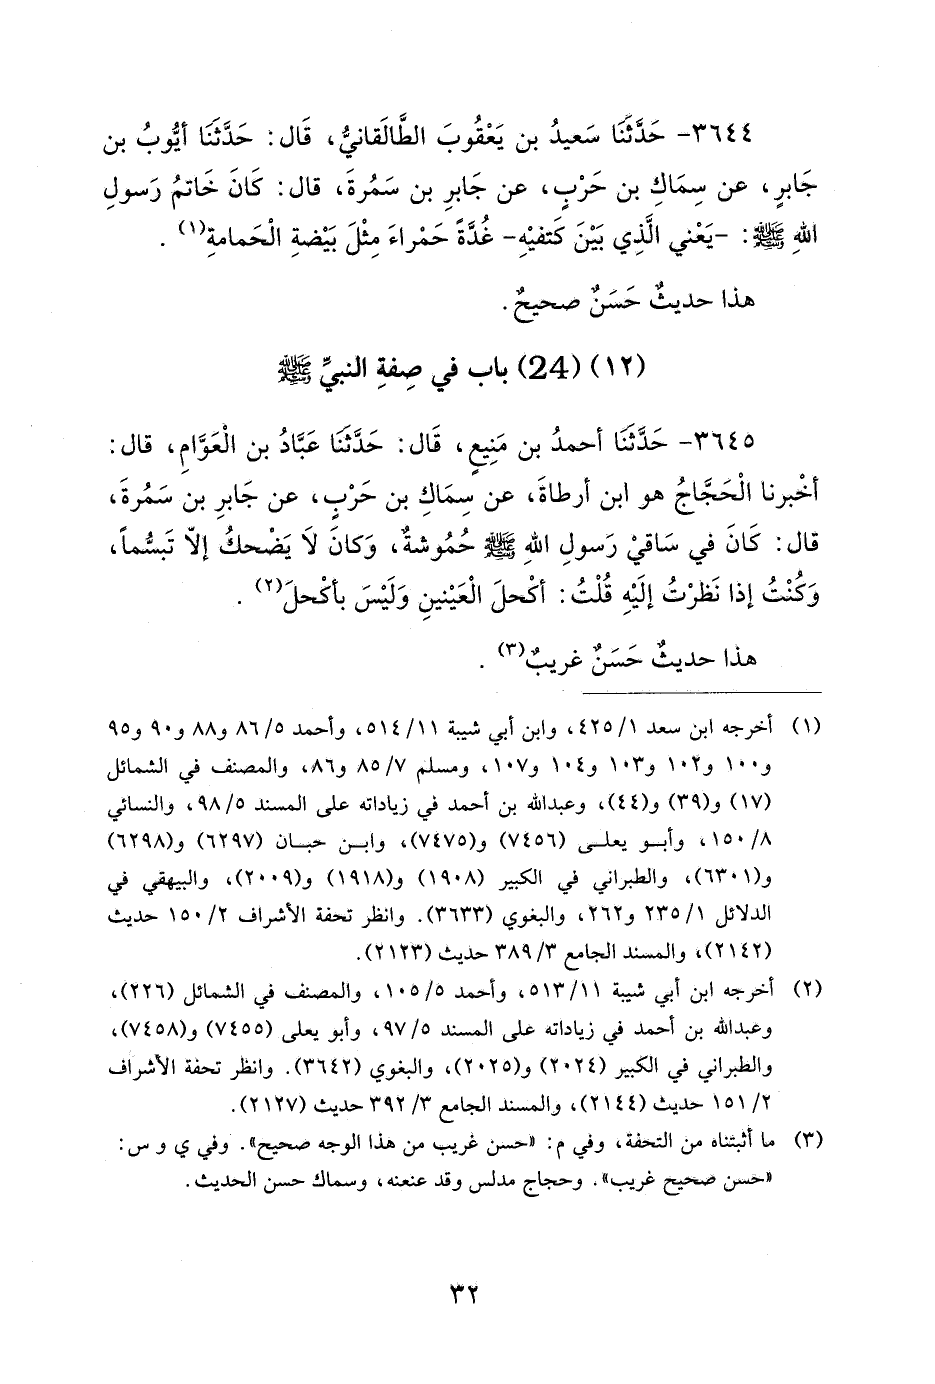 ٣٦٤٤- حَدَّثَنَا سَعيدُ بن يَعْقُوبَ الطَّالَقانيُّ، قَال: حَدَّثَنَا أيُّوبُ بن
جَابرٍ، عن سِمَاكِ بن حَرْبٍ، عن جَابرِ بن سَمُرةَ، قال: كَانَ خَاتمُ رَسولِ
اللهِ ﷺ: -يَعْني الَّذِي بَيْنَ كَتفيْهِ- غُدَّةً حَمْراءَ مِثْلَ بَيْضةِ الْحَمامةِ(١) .
هذا حديثٌ حَسَنٌ صحيحٌ.
(١٢) (24) باب في صِفةِ النبيِّ ﷺ
٣٦٤٥- حَدَّثَنَا أحمدُ بن مَنِيعٍ، قَال: حَدَّثَنَا عَبَّادُ بن الْعَوَّامِ، قال:
أخْبرنا الْحَجَّاجُ هو ابن أرطاةَ، عن سِمَاكِ بن حَرْبٍ، عن جَابرِ بن سَمُرةَ،
قال: كَانَ في سَاقيْ رَسولِ اللهِ ﷺ حُمُوشةٌ، وَكانَ لَا يَضْحكُ إلاّ تَبسُّماً،
وَكُنْتُ إذا نَظرْتُ إلَيْهِ قُلْتُ: أكْحلَ الْعَيْنينِ وَلَيْسَ بأكْحلَ(٢) .
هذا حديثٌ حَسَنٌ غريبٌ(٣) .
(١) أخرجه ابن سعد ١/ ٤٢٥، وابن أبي شيبة ١١/ ٥١٤، وأحمد ٥/ ٨٦ و٨٨ و٩٠ و٩٥
و١٠٠ و١٠٢ و١٠٣ و١٠٤ و١٠٧، ومسلم ٧/ ٨٥ و٨٦، والمصنف في الشمائل
(١٧) و(٣٩) و(٤٤)، وعبدالله بن أحمد في زياداته على المسند ٥/ ٩٨، والنسائي
٨/ ١٥٠، وأبو يعلى (٧٤٥٦) و(٧٤٧٥)، وابن حبان (٦٢٩٧) و(٦٢٩٨)
و(٦٣٠١)، والطبراني في الكبير (١٩٠٨) و(١٩١٨) و(٢٠٠٩)، والبيهقي في
الدلائل ١/ ٢٣٥ و٢٦٢، والبغوي (٣٦٣٣). وانظر تحفة الأشراف ٢/ ١٥٠ حديث
(٢١٤٢)، والمسند الجامع ٣/ ٣٨٩ حديث (٢١٢٣).
(٢) أخرجه ابن أبي شيبة ١١/ ٥١٣، وأحمد ٥/ ١٠٥، والمصنف في الشمائل (٢٢٦)،
وعبدالله بن أحمد في زياداته على المسند ٥/ ٩٧، وأبو يعلى (٧٤٥٥) و(٧٤٥٨)،
والطبراني في الكبير (٢٠٢٤) و(٢٠٢٥)، والبغوي (٣٦٤٢). وانظر تحفة الأشراف
٢/ ١٥١ حديث (٢١٤٤)، والمسند الجامع ٣/ ٣٩٢ حديث (٢١٢٧).
(٣) ما أثبتناه من التحفة، وفي م: «حسن غريب من هذا الوجه صحيح». وفي ي و س:
«حسن صحيح غريب». وحجاج مدلس وقد عنعنه، وسماك حسن الحديث.
٣٢